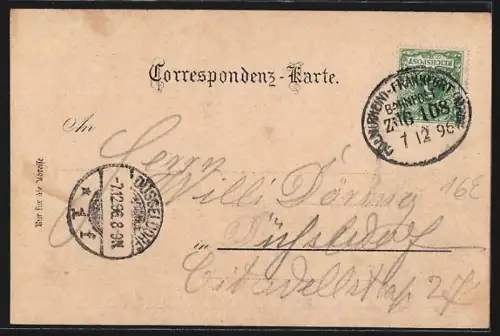 REICHSPOST
Correspondenz-Karte.
CÖLN(RHEIN)-FRANKFURT
BAHNPOST
ZUG 108
7 12 96
An
Herrn
Willi Döring
16E
DÜSSELDORF
-7.12.96.8-9N.
* 1 f
in Düsseldorf
Citadellstr 27
Nur für die Adresse